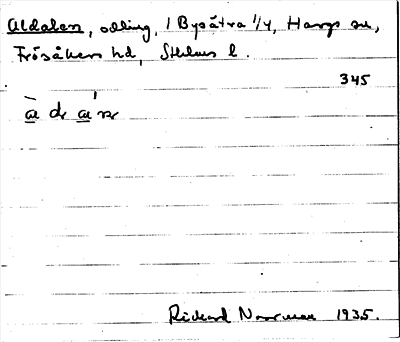 Aldalen, odling, 1 Bysätra 1/4, Hargs sn,
Frösåkers hd, Sthlms l.
345
Rickard Norrman 1935.